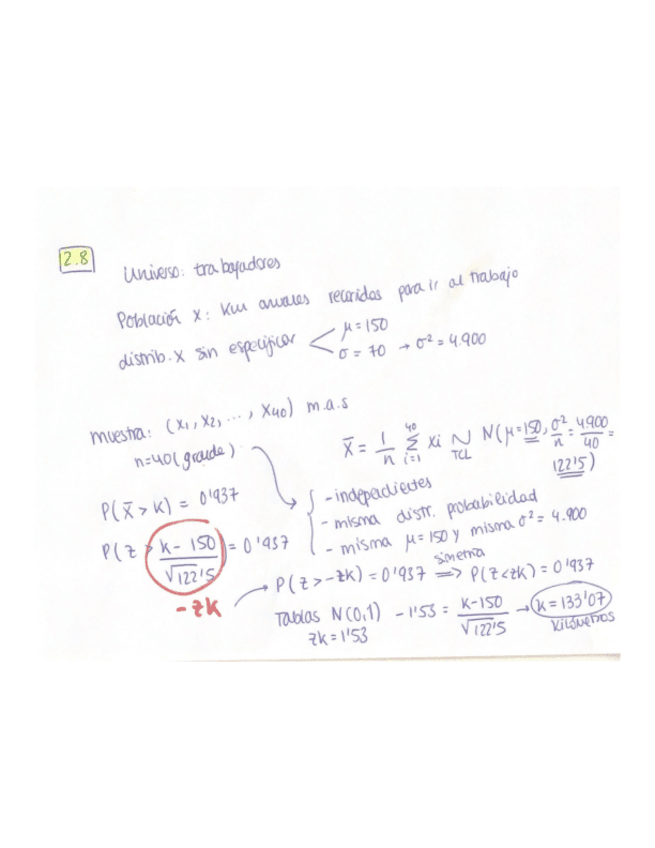 2.8
Universo: trabajadores
Población X: Km anuales recorridos para ir al trabajo
distrib. X sin especificar < μ=150
σ = 70 → σ² = 4.900
muestra: (X₁, X₂, ..., X₄₀) m.a.s
n=40 (grande)
X̄ = 1/n Σ_{i=1}^{40} Xi N TCL N(μ=150, σ²/n = 4.900/40 = 122'5)
- independientes
- misma distr. probabilidad
- misma μ=150 y misma σ² = 4.900
P(X̄ > K) = 0'937
P(Z > K-150/√122'5) = 0'937
-ZK
→ P(Z>-ZK) = 0'937 simetría ⇒ P(Z<ZK) = 0'937
Tablas N(0,1) -1'53 = K-150/√122'5 → K=133'07
ZK = 1'53 Kilómetros